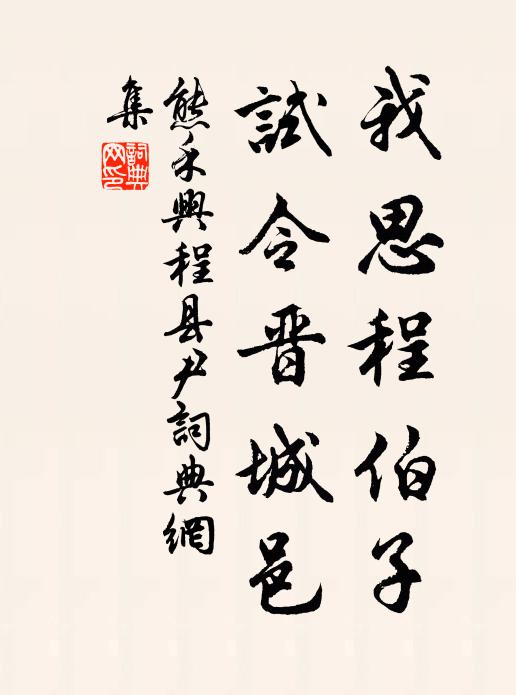 我思程伯子
試令晋城邑
熊禾興程县尹詞典網
集
詞典網印